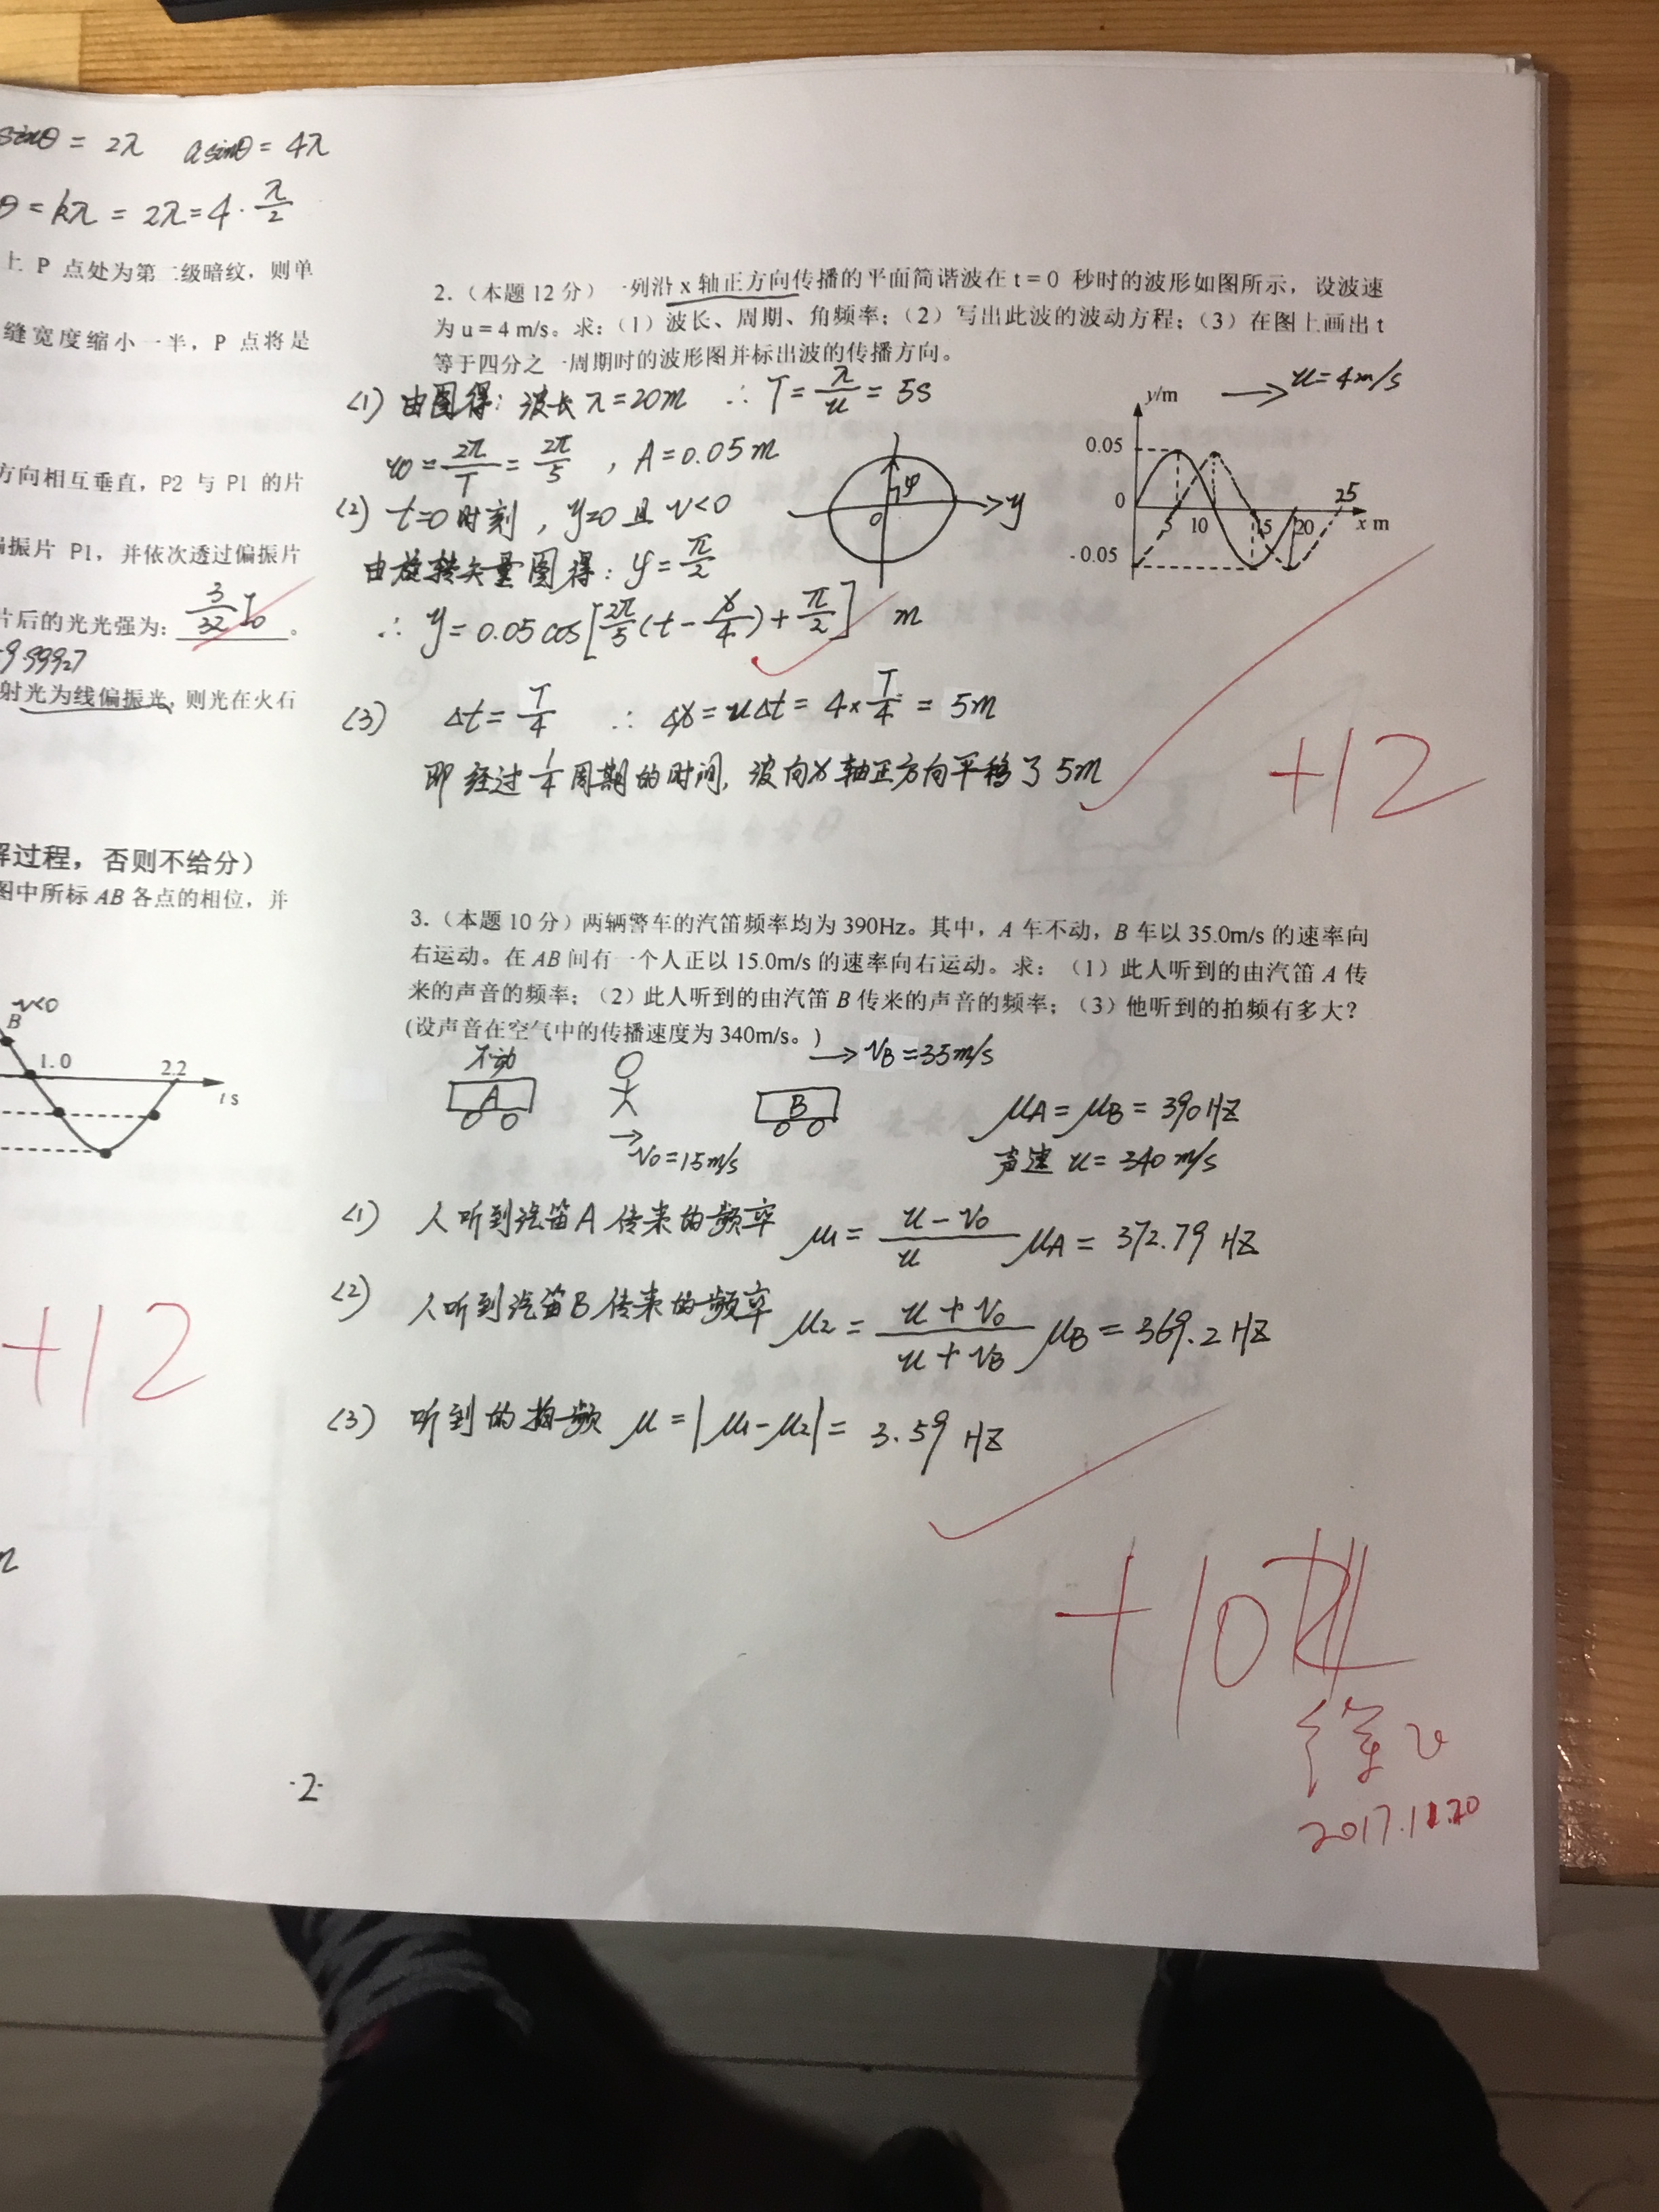 sinθ = 2λ  a sinθ = 4λ
θ = kλ = 2λ = 4 · λ/2
上 P 点处为第二级暗纹，则单
缝宽度缩小一半，P 点将是
方向相互垂直，P2 与 P1 的片
振片 P1，并依次透过偏振片
片后的光光强为: 3/32 I₀ 。
射光为线偏振光，则光在火石
解过程，否则不给分）
图中所标 AB 各点的相位，并
v<0
B
1.0
2.2
t s
+12
2.（本题 12 分）一列沿 x 轴正方向传播的平面简谐波在 t = 0 秒时的波形如图所示，设波速
为 u = 4 m/s。求:（1）波长、周期、角频率;（2）写出此波的波动方程;（3）在图上画出 t
等于四分之一周期时的波形图并标出波的传播方向。
(1) 由图得: 波长 λ=20m ∴ T = λ/u = 5s
ω = 2π/T = 2π/5 , A = 0.05m
(2) t=0时刻，y=0 且 v<0
由旋转矢量图得: φ = π/2
∴ y = 0.05 cos[2π/5 (t - x/4) + π/2] m
φ
0
y
u=4m/s
y/m
0.05
0
5 10 15 20
25
x m
-0.05
(3) Δt = T/4 ∴ Δx = uΔt = 4×T/4 = 5m
即经过 1/4 周期的时间，波向x轴正方向平移了5m
+12
3.（本题 10 分）两辆警车的汽笛频率均为 390Hz。其中，A 车不动，B 车以 35.0m/s 的速率向
右运动。在 AB 间有一个人正以 15.0m/s 的速率向右运动。求:（1）此人听到的由汽笛 A 传
来的声音的频率;（2）此人听到的由汽笛 B 传来的声音的频率;（3）他听到的拍频有多大?
(设声音在空气中的传播速度为 340m/s。)
不动
A
v₀=15m/s
B
v_B=35m/s
μA = μB = 390HZ
声速 u = 340 m/s
(1) 人听到汽笛A传来的频率 μ₁ = (u - v₀)/u μA = 372.79 HZ
(2) 人听到汽笛B传来的频率 μ₂ = (u + v₀)/(u + v_B) μB = 369.2 HZ
(3) 听到的拍频 μ = |μ₁ - μ₂| = 3.59 HZ
+10
2017.11.20
·2·